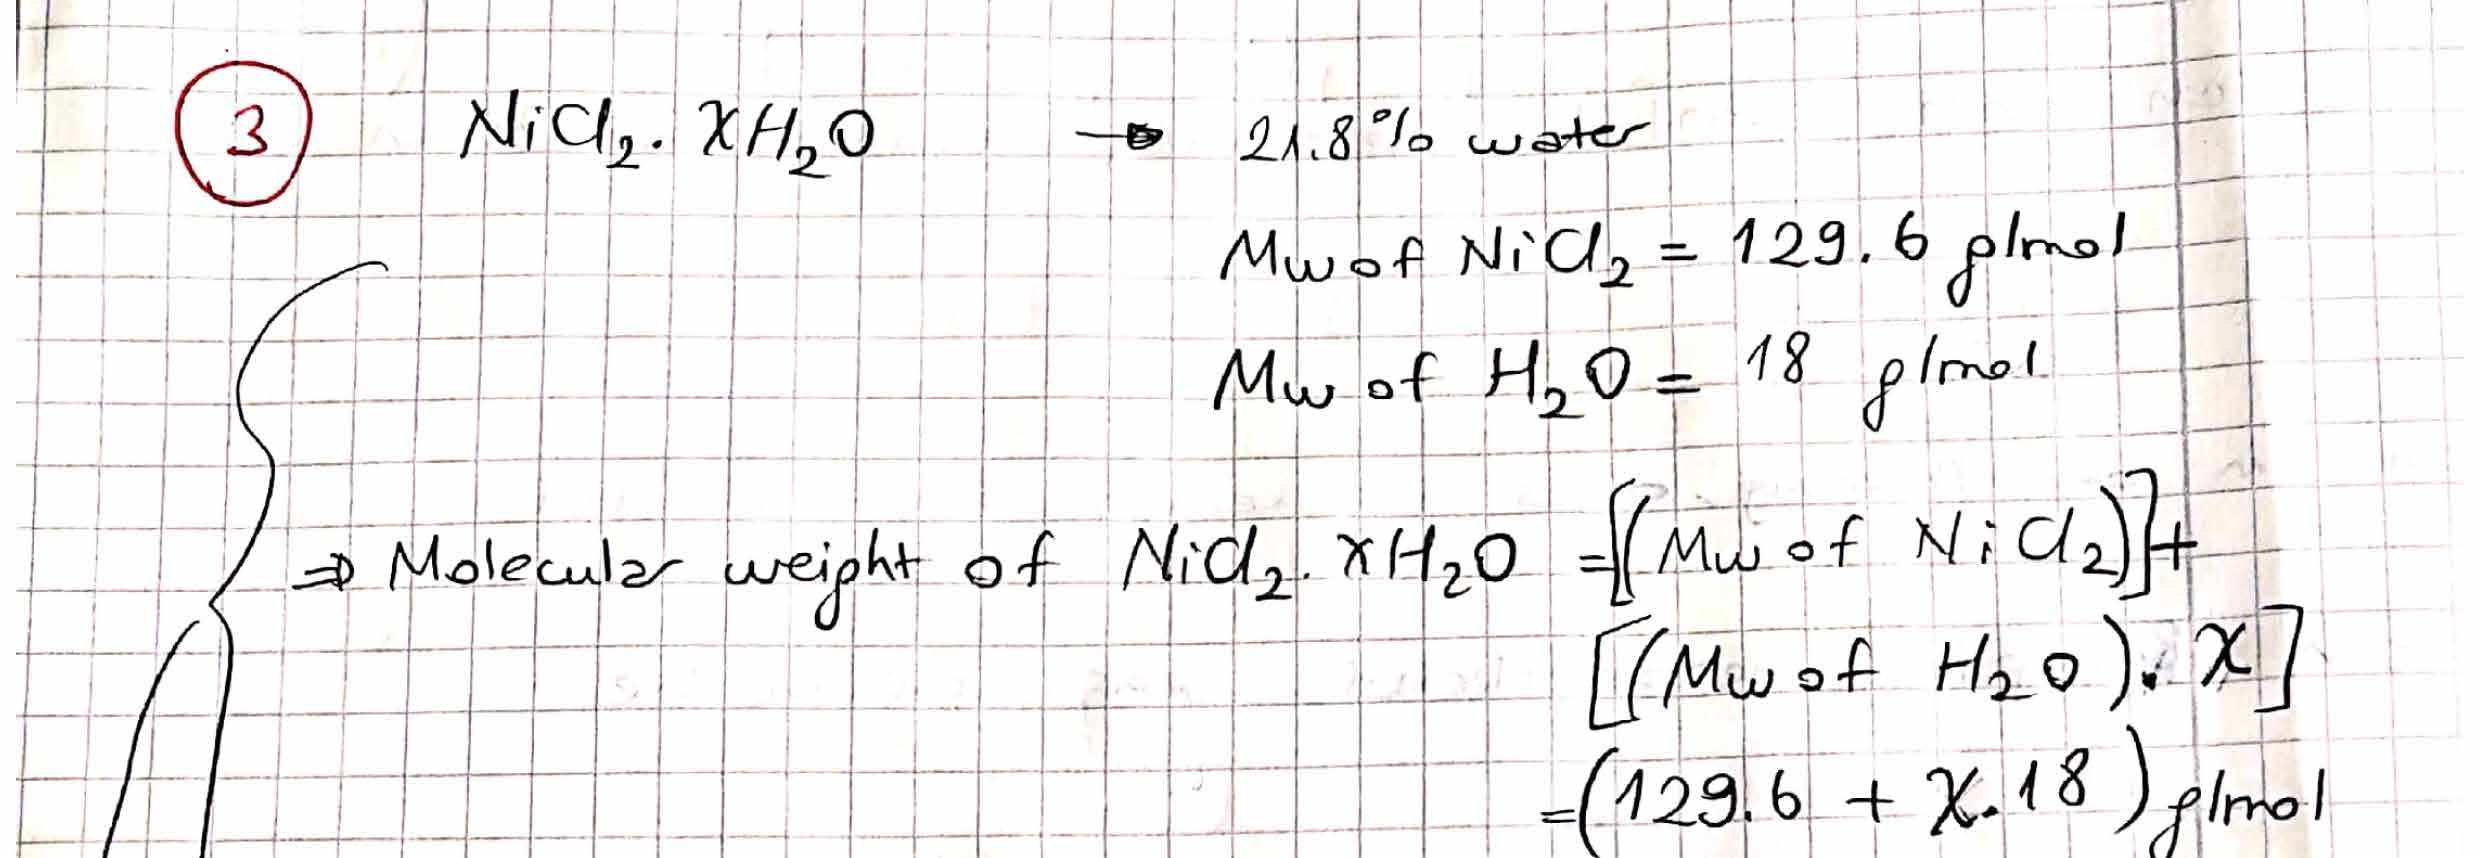 3 NiCl₂. XH₂O → 21.8% water
Mw of NiCl₂ = 129.6 g/mol
Mw of H₂O = 18 g/mol
⇒ Molecular weight of NiCl₂. xH₂O = [(Mw of NiCl₂)] +
[(Mw of H₂O). X]
= (129.6 + X.18) g/mol